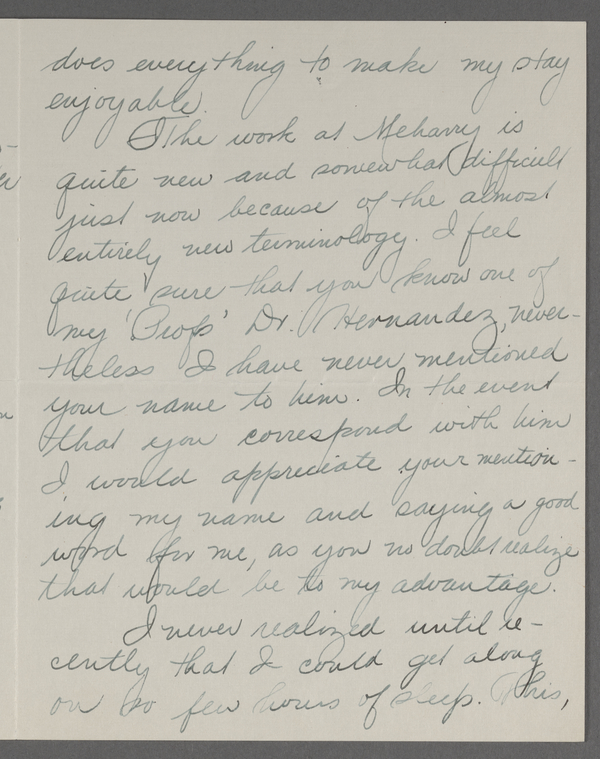 does everything to make my stay
enjoyable.
The work at Meharry is
quite new and somewhat difficult
just now because of the almost
entirely new terminology. I feel
quite sure that you know one of
my 'Profs' Dr. Hernandez, never-
theless I have never mentioned
your name to him. In the event
that you correspond with him
I would appreciate your mention-
ing my name and saying a good
word for me, as you no doubt realize
that would be to my advantage.
I never realized until re-
cently that I could get along
on so few hours of sleep. This,